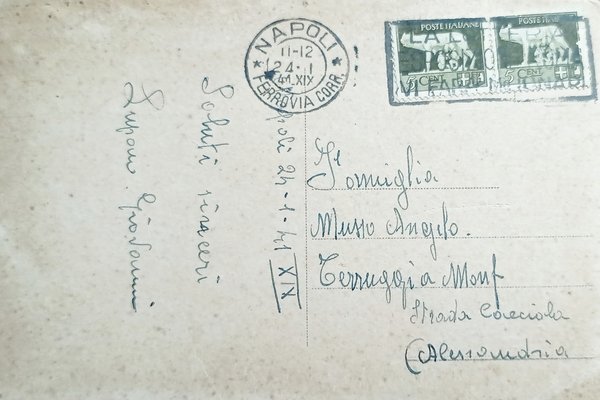 NAPOLI
11-12
24.1
41.XIX
FERROVIA CORR.
POSTE ITALIANE
POSTE ITALIANE
5 CENT
5 CENT
Napoli 24-1-41 XIX
Saluti sinceri
Lupano Giovanni
Famiglia
Musso Angelo.
Terruggia Monf
Strada Cacciola
(Alessandria